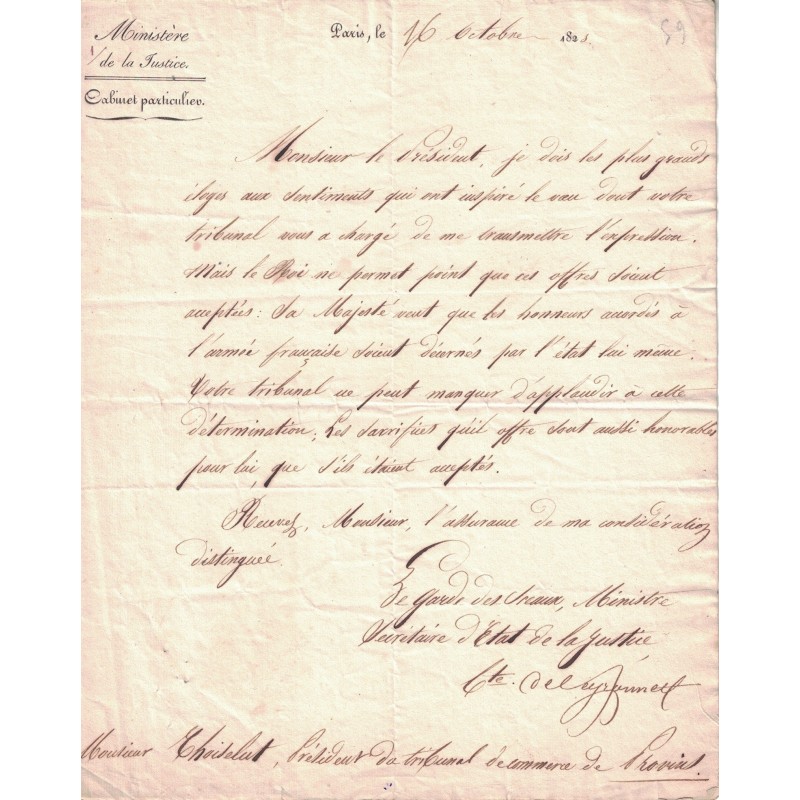 Ministère
de la Justice.
Cabinet particulier.
Paris, le 16 Octobre 182
59
Monsieur le Président, je dois les plus grands
éloges aux sentiments qui ont inspiré le vœu dont votre
tribunal vous a chargé de me transmettre l'expression.
Mais le Roi ne permet point que ces offres soient
acceptées: Sa Majesté veut que les honneurs accordés à
l'armée française soient décernés par l'état lui même.
Votre tribunal ne peut manquer d'applaudir à cette
détermination; Les sacrifices qu'il offre sont aussi honorables
pour lui, que s'ils étaient acceptés.
Recevez, Monsieur, l'assurance de ma considération
distinguée.
Le Garde des Sceaux, Ministre
Secrétaire d'Etat de la Justice
Cte. de Peyronnet
Monsieur président du tribunal de commerce de Provins.